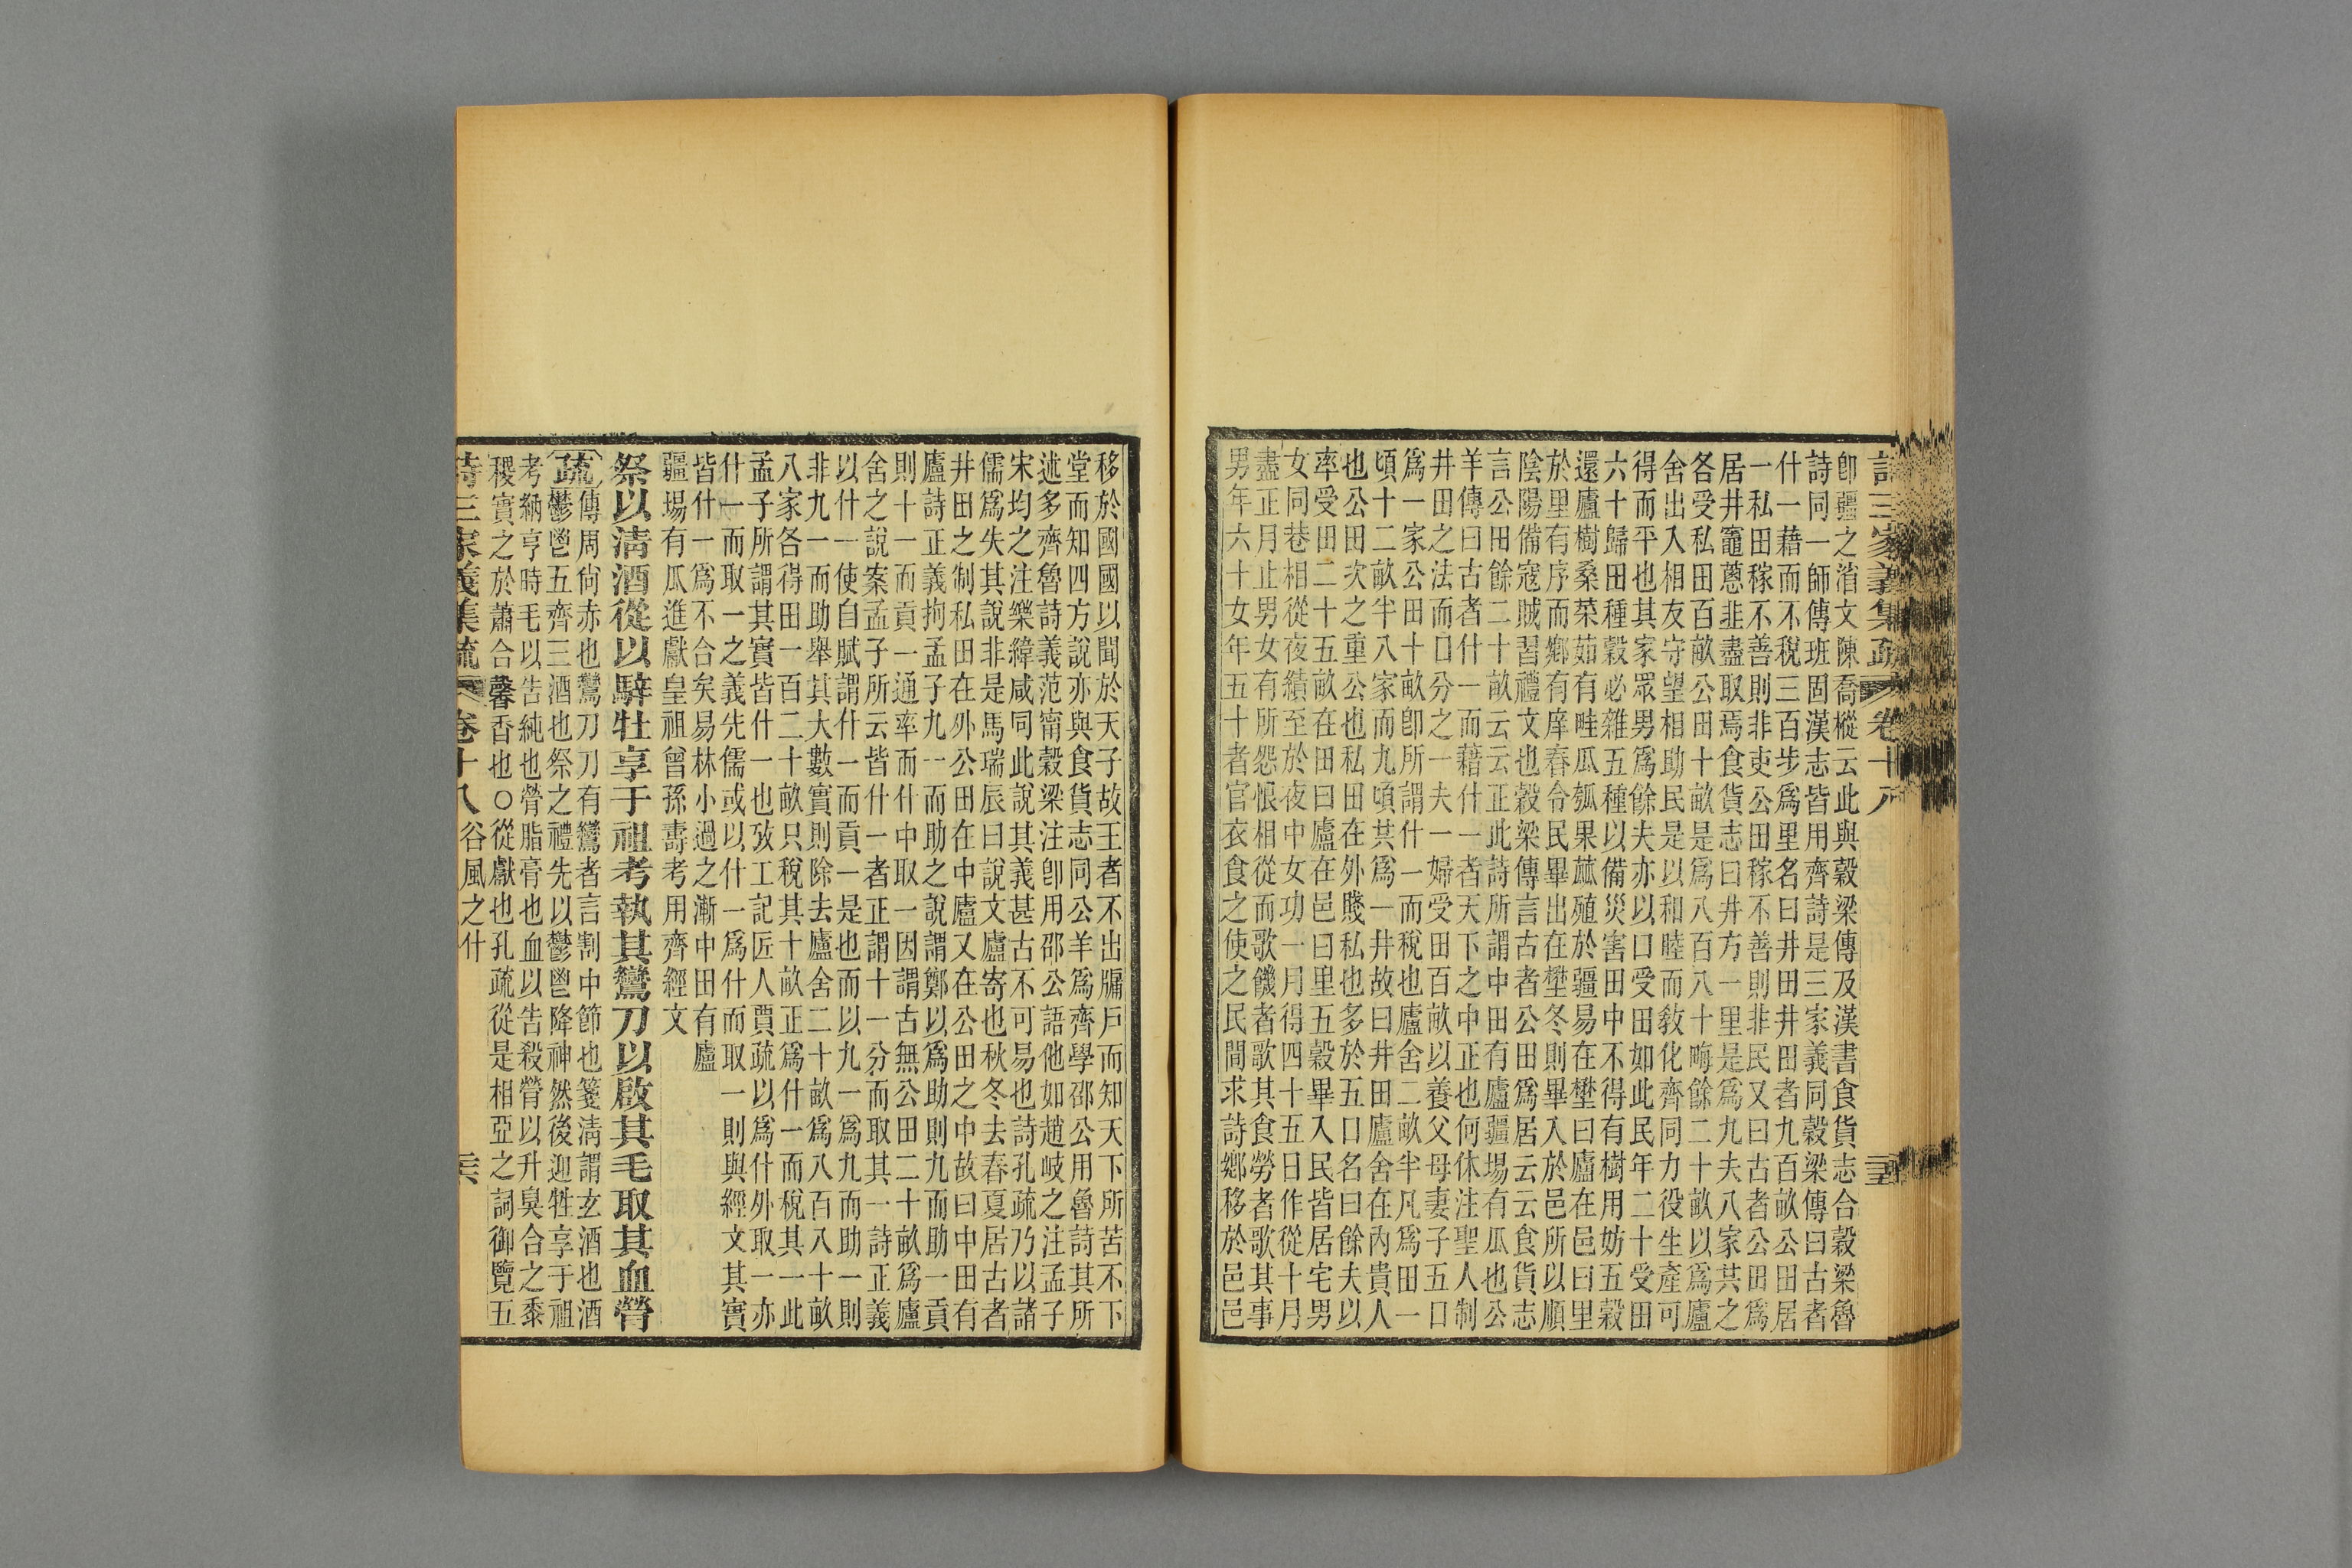 詩三家義集疏 卷十八
卽疆之消文陳喬樅云此與穀梁傳及漢書食貨志合穀梁魯
詩同一師傳班固漢志皆用齊詩是三家義同穀梁傳曰古者
什一藉而不稅三百步爲里名曰井田井田者九百畝公田居
一私田稼不善則非吏公田稼不善則非民又曰古者公田爲
居井竈蔥韭盡取焉食貨志曰井方一里是爲九夫八家共之
各受私田百畝公田十畝是爲八百八十畮餘二十畝以爲廬
舍出入相友守望相助民是以和睦而敎化齊同力役生產可
得而平也其家眾男爲餘夫亦以口受田如此民年二十受田
六十歸田種穀必雜五種以備災害田中不得有樹用妨五穀
還廬樹桑菜茹有畦瓜瓠果蓏殖於疆易在壄曰廬在邑曰里
於里有序而鄉有庠春令民畢出在壄冬則畢入於邑所以順
陰陽備寇賊習禮文也穀梁傳言古者公田爲居云云食貨志
言公田餘二十畝云云正此詩所謂中田有廬疆場有瓜也公
羊傳曰古者什一而藉什一者天下之中正也何休注聖人制
井田之法而口分之一夫一婦受田百畝以養父母妻子五口
爲一家公田十畝卽所謂什一而稅也廬舍二畝半凡爲田一
頃十二畝半八家而九頃其爲一井故曰井田廬舍在內貴人
也公田次之重公也私田在外賤私也多於五口名曰餘夫以
率受田二十五畝在田曰廬在邑曰里五穀畢入民皆居宅男
女同巷相從夜績至於夜中女功一月得四十五日作從十月
盡正月止男女有所怨恨相從而歌饑者歌其食勞者歌其事
男年六十女年五十者官衣食之使之民間求詩鄉移於邑邑
移於國國以聞於天子故王者不出牖戶而知天下所苦不下
堂而知四方說亦與食貨志同公羊爲齊學邵公用魯詩其所
述多齊魯詩義范甯穀梁注卽用邵公語他如趙岐之注孟子
宋均之注樂緯咸同此說其義甚古不可易也詩孔疏乃以諸
儒爲失其說非是馬瑞辰曰說文廬寄也秋冬去春夏居古者
井田之制私田在外公田在中廬又在公田之中故曰中田有
廬詩正義拘孟子九一而助之說謂鄭以爲助則九而助一貢
則十一而貢一通率而什中取一因謂古無公田二十畝爲廬
舍之說案孟子所云皆什一者正謂十一分而取其一詩正義
以什一使自賦謂什一而貢一是也而以九一爲九而助一則
非九一而助舉其大數實則除去廬舍二十畝爲八百八十畝
八家各得田一百二十畝只稅其十畝正爲什一而稅其一此
孟子所謂其實皆什一也攷工記匠人賈疏以爲什外取一亦
什一而取一之義先儒或以什一爲什而取一則與經文其實
皆什一爲不合矣易林小過之漸中田有廬
疆場有瓜進獻皇祖曾孫壽考用齊經文
祭以淸酒從以騂牡享于祖考執其鸞刀以啟其毛取其血膋
疏傳周尙赤也鸞刀刀有鸞者言割中節也箋淸謂玄酒也酒
鬱鬯五齊三酒也祭之禮先以鬱鬯降神然後迎牲享于祖
考納亨時毛以告純也膋脂膏也血以告殺膋以升臭合之黍
稷實之於蕭合馨香也○從獻也孔疏從是相亞之詞御覽五
詩三家義集疏 卷十八 谷風之什